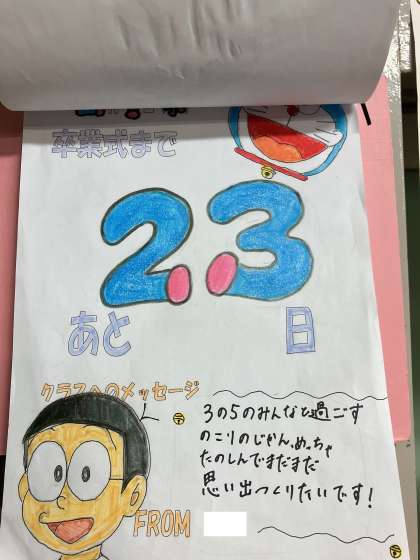 卒業式まで
23
あと 日
クラスへのメッセージ
3の5のみんなと過ごす
のこりのじかん、めっちゃ
たのしんでまだまだ
思い出つくりたいです!
FROM